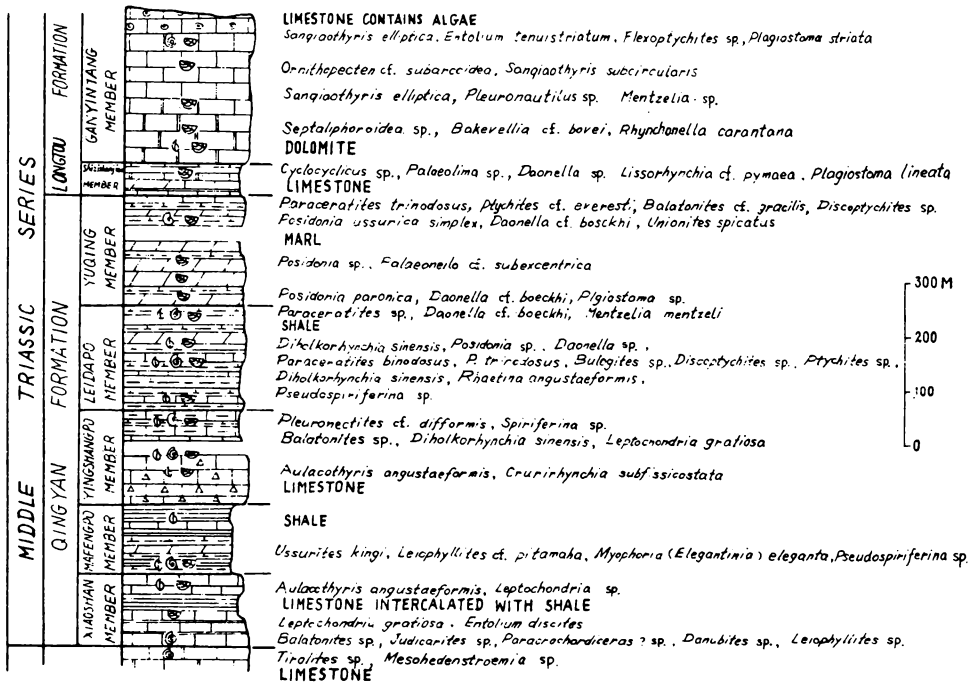 MIDDLE TRIASSIC SERIES
QINGYAN FORMATION
LONGTOU FORMATION
GANYINTANG MEMBER
MEMBER
YUQING MEMBER
LEIDAPO MEMBER
YINGSHANGPO MEMBER
MAFENGPO MEMBER
XIAOSHAN MEMBER
LIMESTONE CONTAINS ALGAE
Sanqiaothyris elliptica, Entolium tenuistriatum, Flexoptychites sp., Plagiostoma striata
Ornithopecten cf. subarccidea, Sanqiaothyris subcircularis
Sanqiaothyris elliptica, Pleuronautilus sp. Mentzelia sp.
Septaliphoroidea sp., Bakevellia cf. bovei, Rhynchonella carantana
DOLOMITE
Cyclocyclicus sp., Palaeolima sp., Daonella sp. Lissorhynchia cf. pymaea, Plagiostoma lineata
LIMESTONE
Paraceratites trinodosus, Ptychites cf. everesti, Balatonites cf. gracilis, Discoptychites sp.
Posidonia ussurica simplex, Daonella cf. bosckhi, Unionites spicatus
MARL
Posidonia sp., Palaeoneilo cf. subexcentrica
Posidonia paronica, Daonella cf. boeckhi, Plgiostoma sp.
Paraceratites sp., Daonella cf. boeckhi, Mentzelia mentzeli
SHALE
Diholkorhynchia sinensis, Posidonia sp., Daonella sp.,
Paraceratites binodosus, P. tricdosus, Bulogites sp., Discoptychites sp., Ptychites sp.,
Diholkorhynchia sinensis, Rhaetina angustaeformis,
Pseudospiriferina sp.
Pleuronectites cf. difformis, Spiriferina sp.
Balatonites sp., Diholkorhynchia sinensis, Leptochondria gratiosa
Aulacothyris angustaeformis, Crurirhynchia subfissicostata
LIMESTONE
SHALE
Ussurites kingi, Leiophyllites cf. pitamaha, Myophoria (Elegantinia) eleganta, Pseudospiriferina sp.
Aulacothyris angustaeformis, Leptochondria sp.
LIMESTONE INTERCALATED WITH SHALE
Leptochondria gratiosa, Entolium discites
Balatonites sp., Judicarites sp., Paracrochordiceras ? sp., Danubites sp., Leiophyllites sp.
Tirolites sp., Mesohedenstroemia sp.
LIMESTONE
300 M
200
100
0